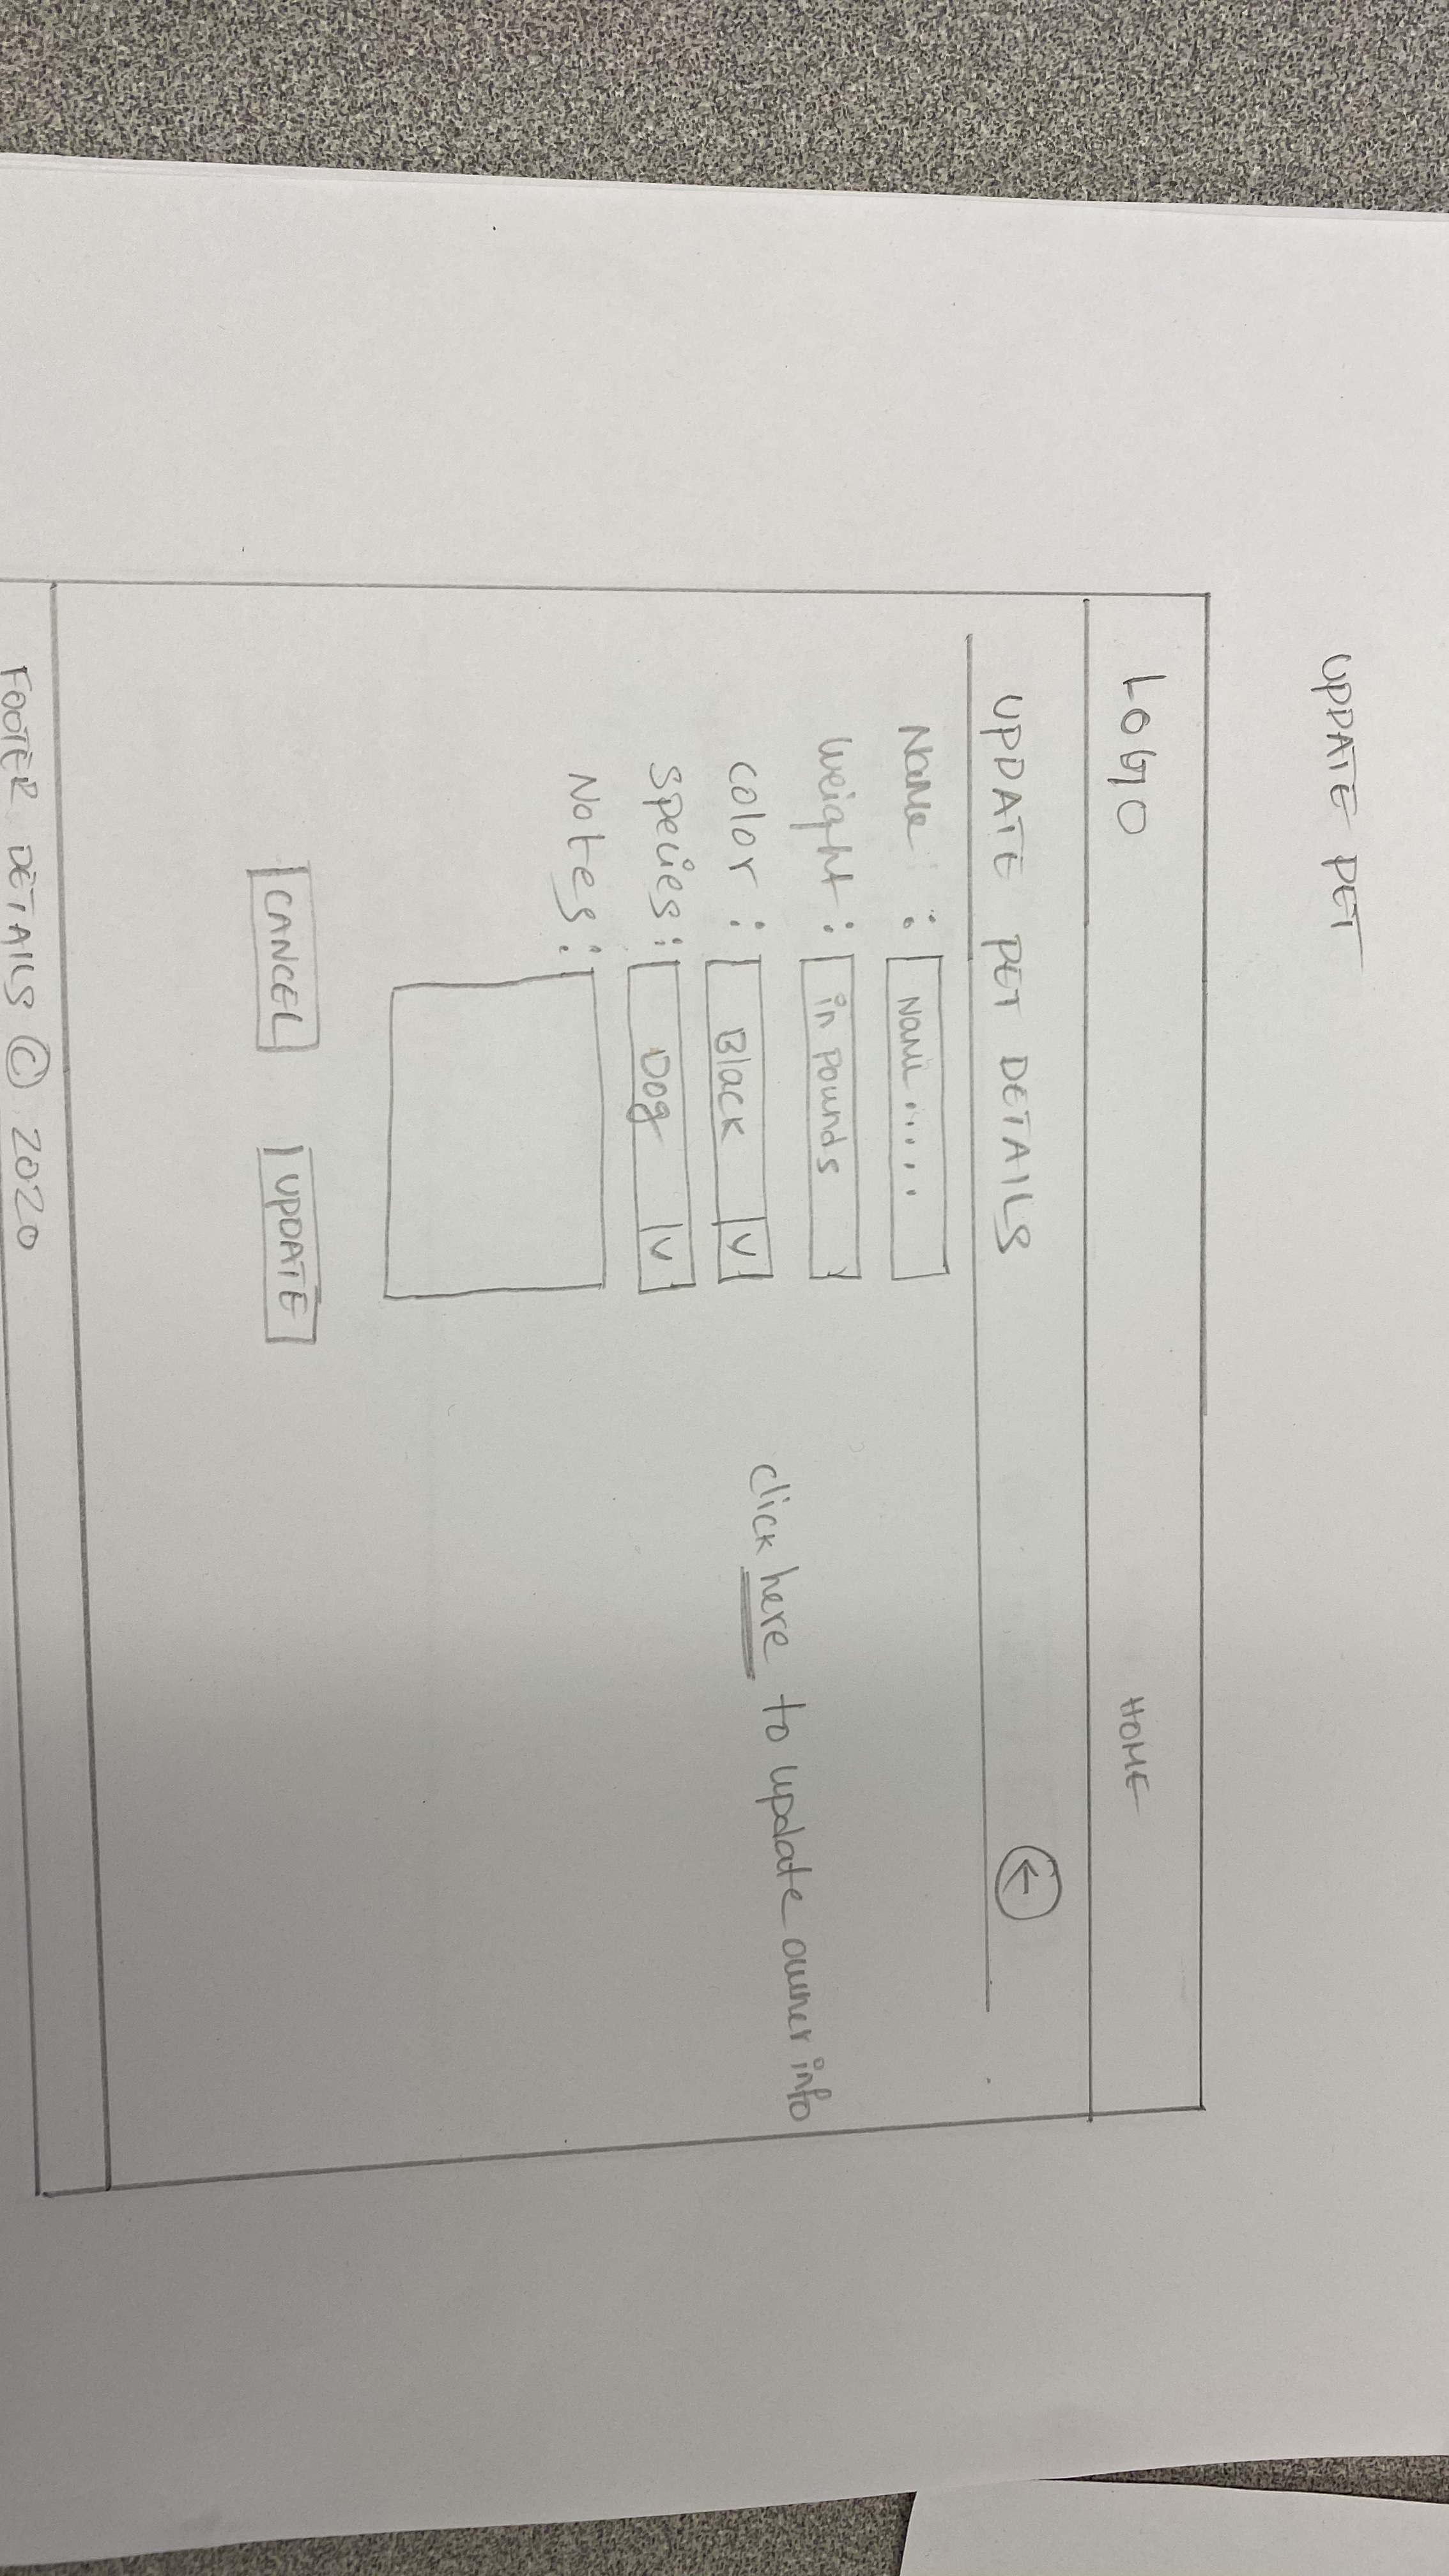 UPDATE PET
LOGO HOME
UPDATE PET DETAILS
Name : Name.....
Weight : in Pounds
Color : Black
Species : Dog
click here to update owner info
Notes :
CANCEL UPDATE
FOOTER DETAILS © 2020